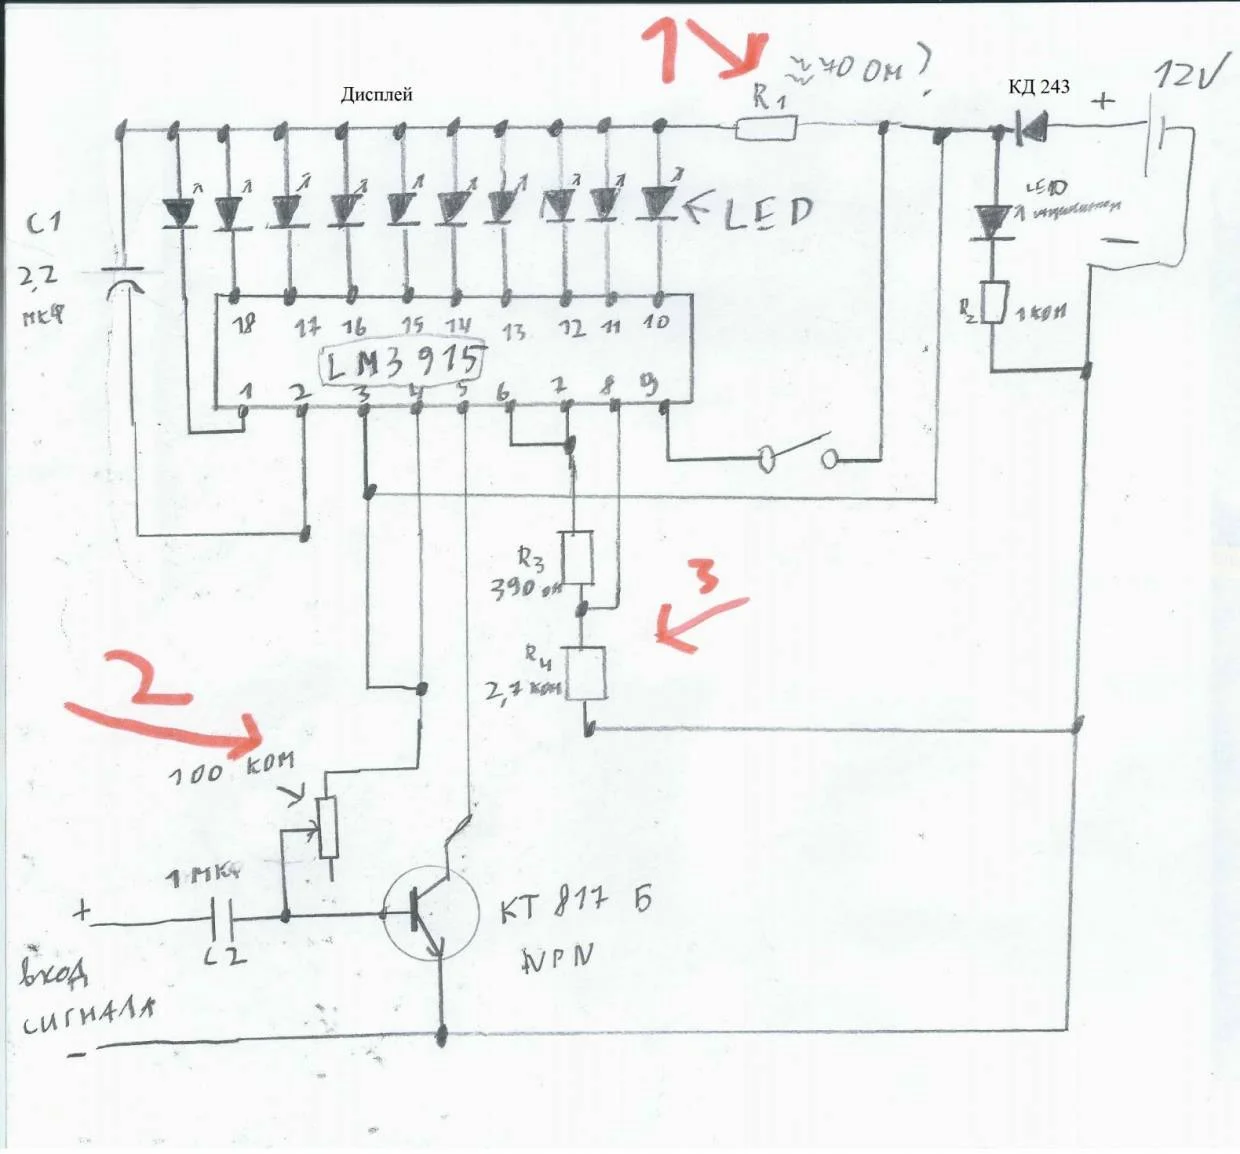 1
≈ 70 Ом?
Дисплей
R1
КД 243
+
12V
C1
2,2
мкф
LED
LED
-
R2
1 ком
18 17 16 15 14 13 12 11 10
LM3915
1 2 3 4 5 6 7 8 9
R3
390 ом
3
R4
2,7 ком
2
100 КОМ
1 МКФ
+
C2
КТ 817 Б
NPN
ВХОД
СИГНАЛА
-